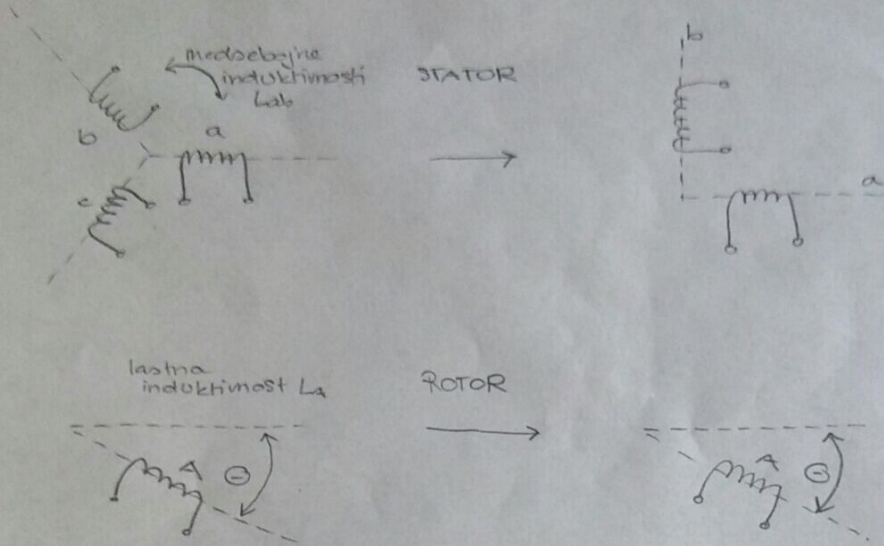 medsebojne
induktivnosti
Lab
STATOR
b
a
c
b
a
lastna
induktivnost LA
ROTOR
A
Θ
A
Θ